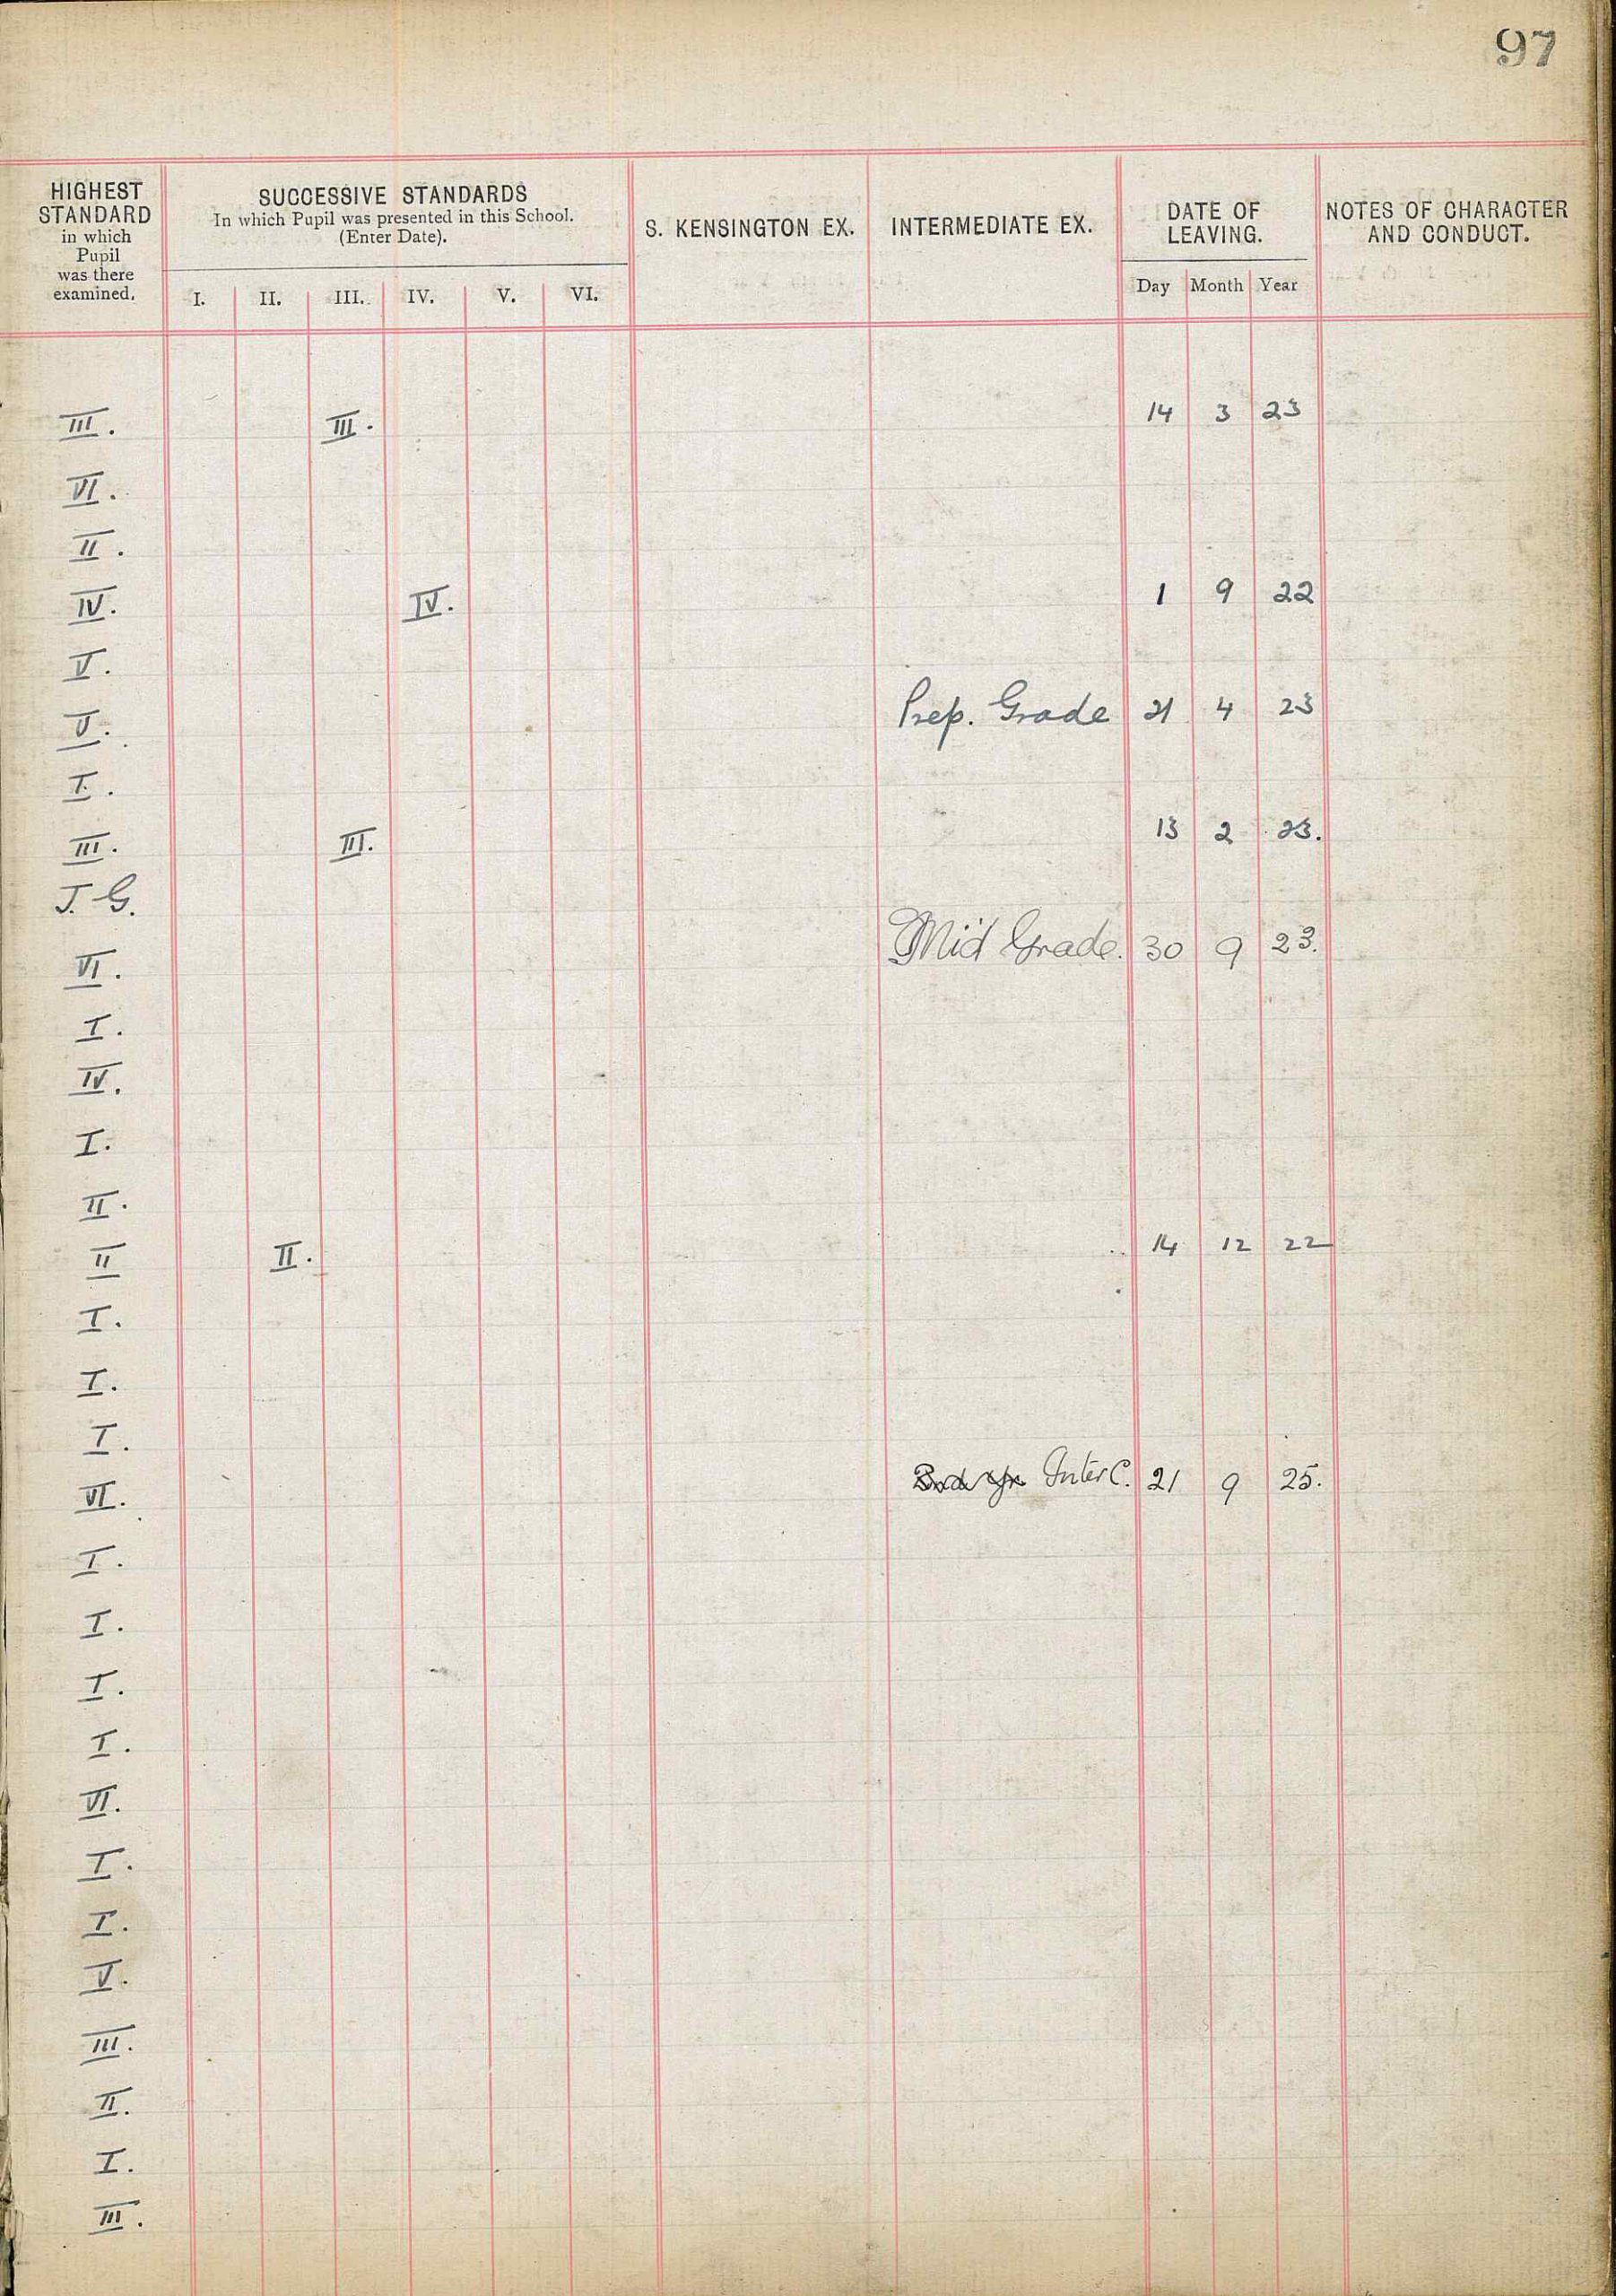 97
HIGHEST STANDARD in which Pupil was there examined.
SUCCESSIVE STANDARDS
In which Pupil was presented in this School.
(Enter Date).
I. II. III. IV. V. VI.
S. KENSINGTON EX.
INTERMEDIATE EX.
DATE OF LEAVING.
Day Month Year
NOTES OF CHARACTER AND CONDUCT.
III. III. 14 3 23
VI.
II.
IV. IV. 1 9 22
V.
V. Prep. Grade 21 4 23
I.
III. III. 13 2 23.
J. G.
VI. Mid Grade. 30 9 23.
I.
IV.
I.
II.
II II. 14 12 22
I.
I.
I.
VI. Inter C. 21 9 25.
I.
I.
I.
I.
VI.
I.
I.
V.
III.
II.
I.
III.